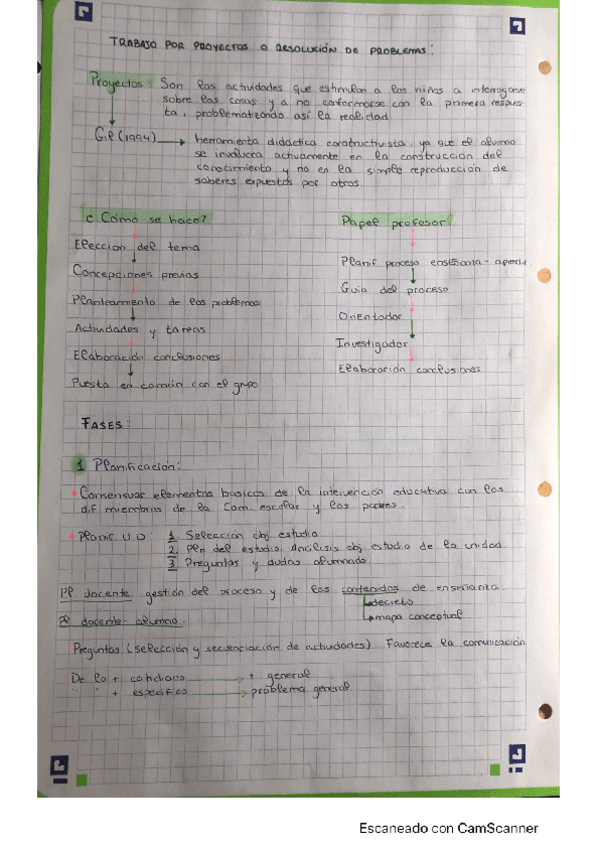 TRABAJO POR PROYECTOS O RESOLUCIÓN DE PROBLEMAS:
Proyectos: Son las actividades que estimulan a los niños a interrogarse
sobre las cosas y a no conformarse con la primera respues
ta, problematizando así la realidad.
Gil (1994) → herramienta didáctica constructivista, ya que el alumno
se involucra activamente en la construcción del
conocimiento y no en la simple reproducción de
saberes expuestos por otros.
¿Cómo se hace?
Elección del tema
Concepciones previas
Planteamiento de los problemas
Actividades y tareas
Elaboración conclusiones
Puesta en común con el grupo
Papel profesor
Planif proceso enseñanza-apend.
Guia del proceso
Orientador
Investigador
Elaboración conclusiones
FASES:
1 Planificación:
Consensuar elementos basicos de la intervención educativa con los
dif miembros de la com. escolar y los padres.
Planif U.D 1. Selección obj estudio
2. Pln del estudio. Análisis obj estudio de la unidad
3 Preguntas y dudas alumnado.
Pl docente: gestión del proceso y de los contenidos de enseñanza
decreto
mapa conceptual
Pl docente-alumno.
Preguntas (selección y secuenciación de actividades) Favorece la comunicación
De lo + cotidiano → + general
" " + específico → problema general
Escaneado con CamScanner